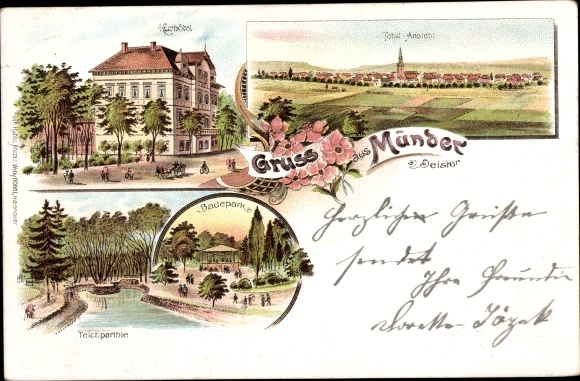 Kurhôtel
Total-Ansicht
Gruss
aus
Münder
a/Deister
Badepark
Teichparthie
Herzliche Grüße
sendet
Ihre Freundin
Dorette